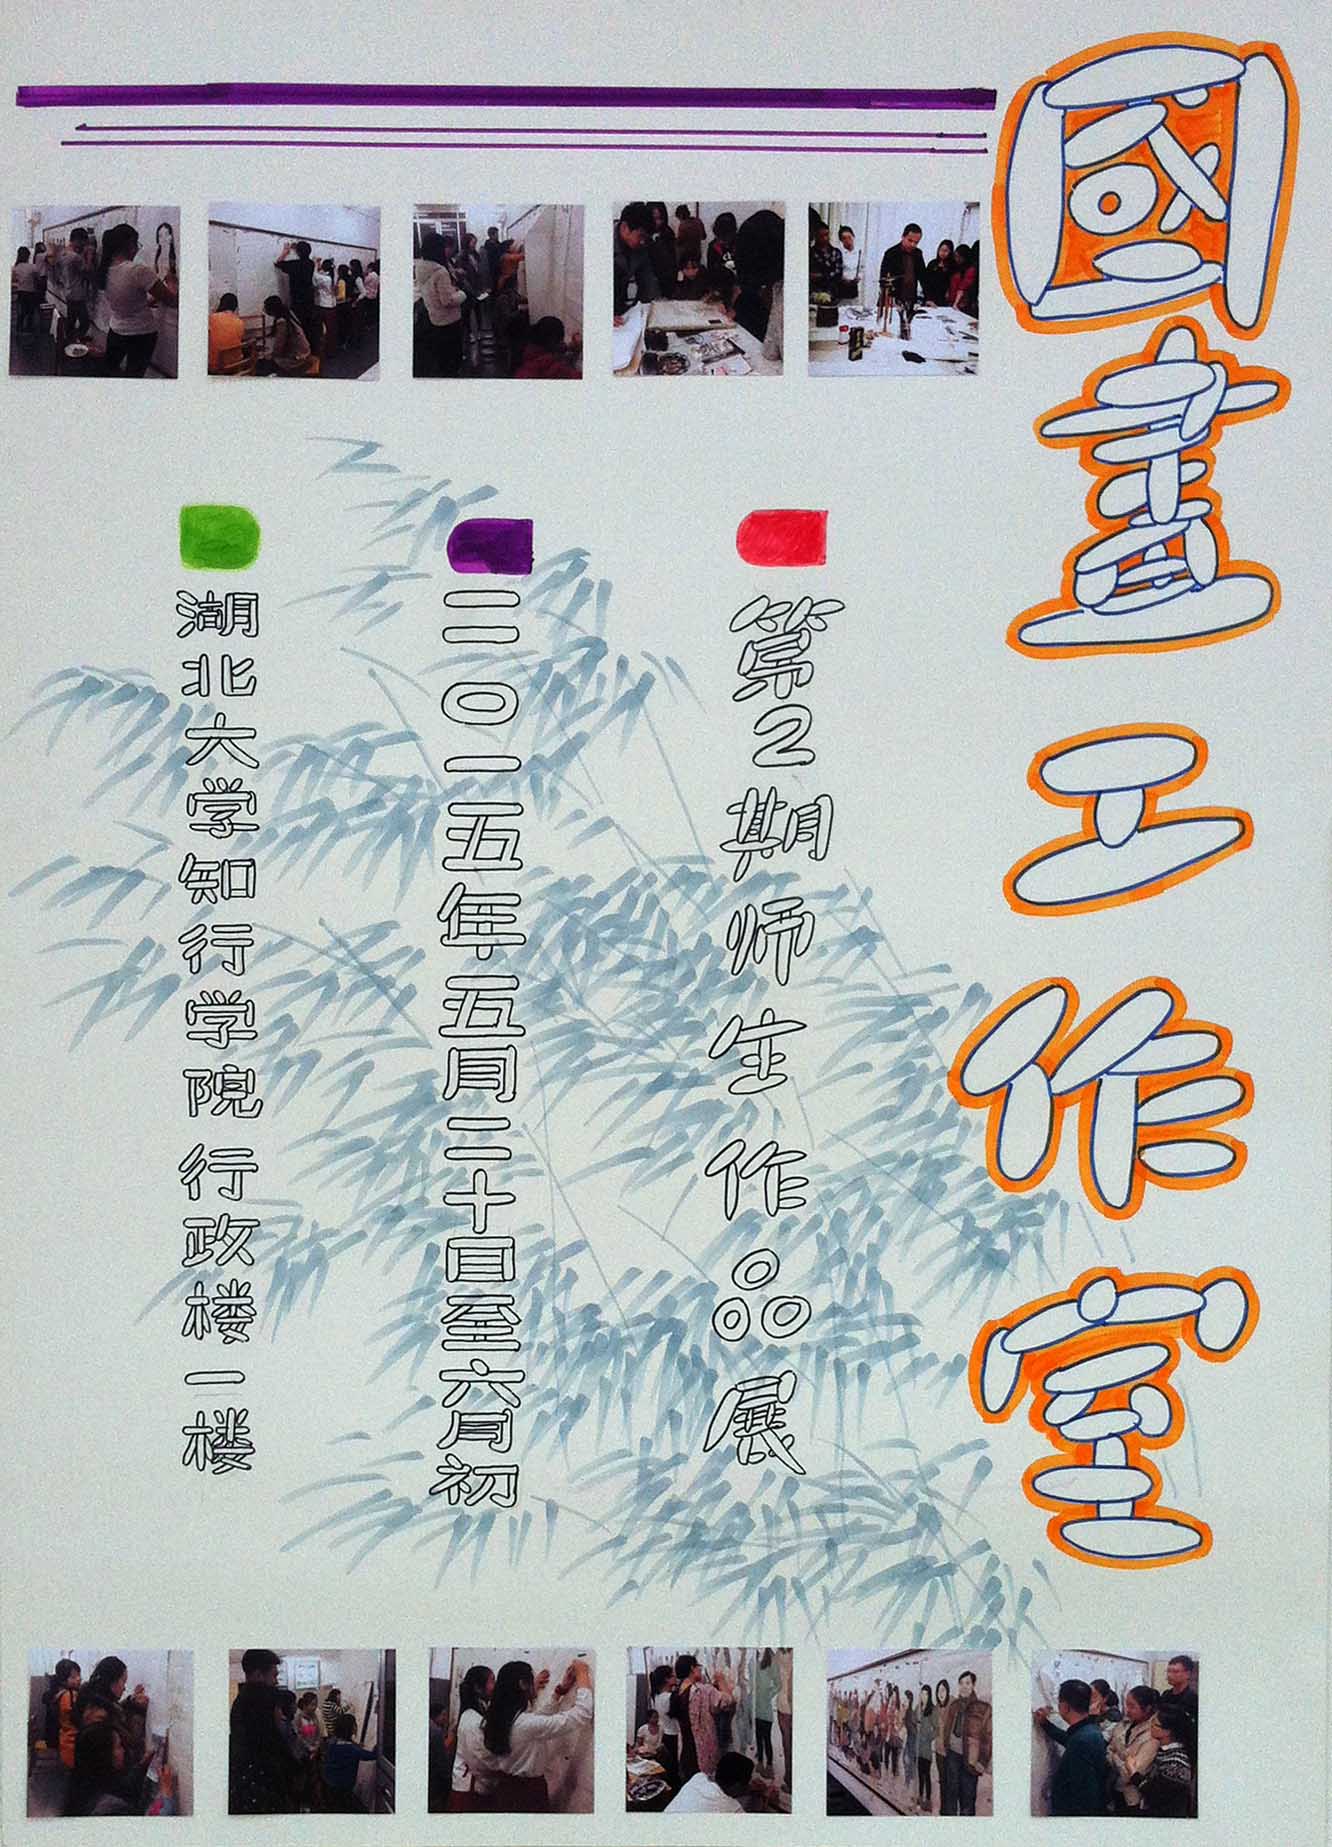 國畫工作室
第2期师生作品展
二〇一五年五月二十日至六月初
湖北大学知行学院行政楼一楼